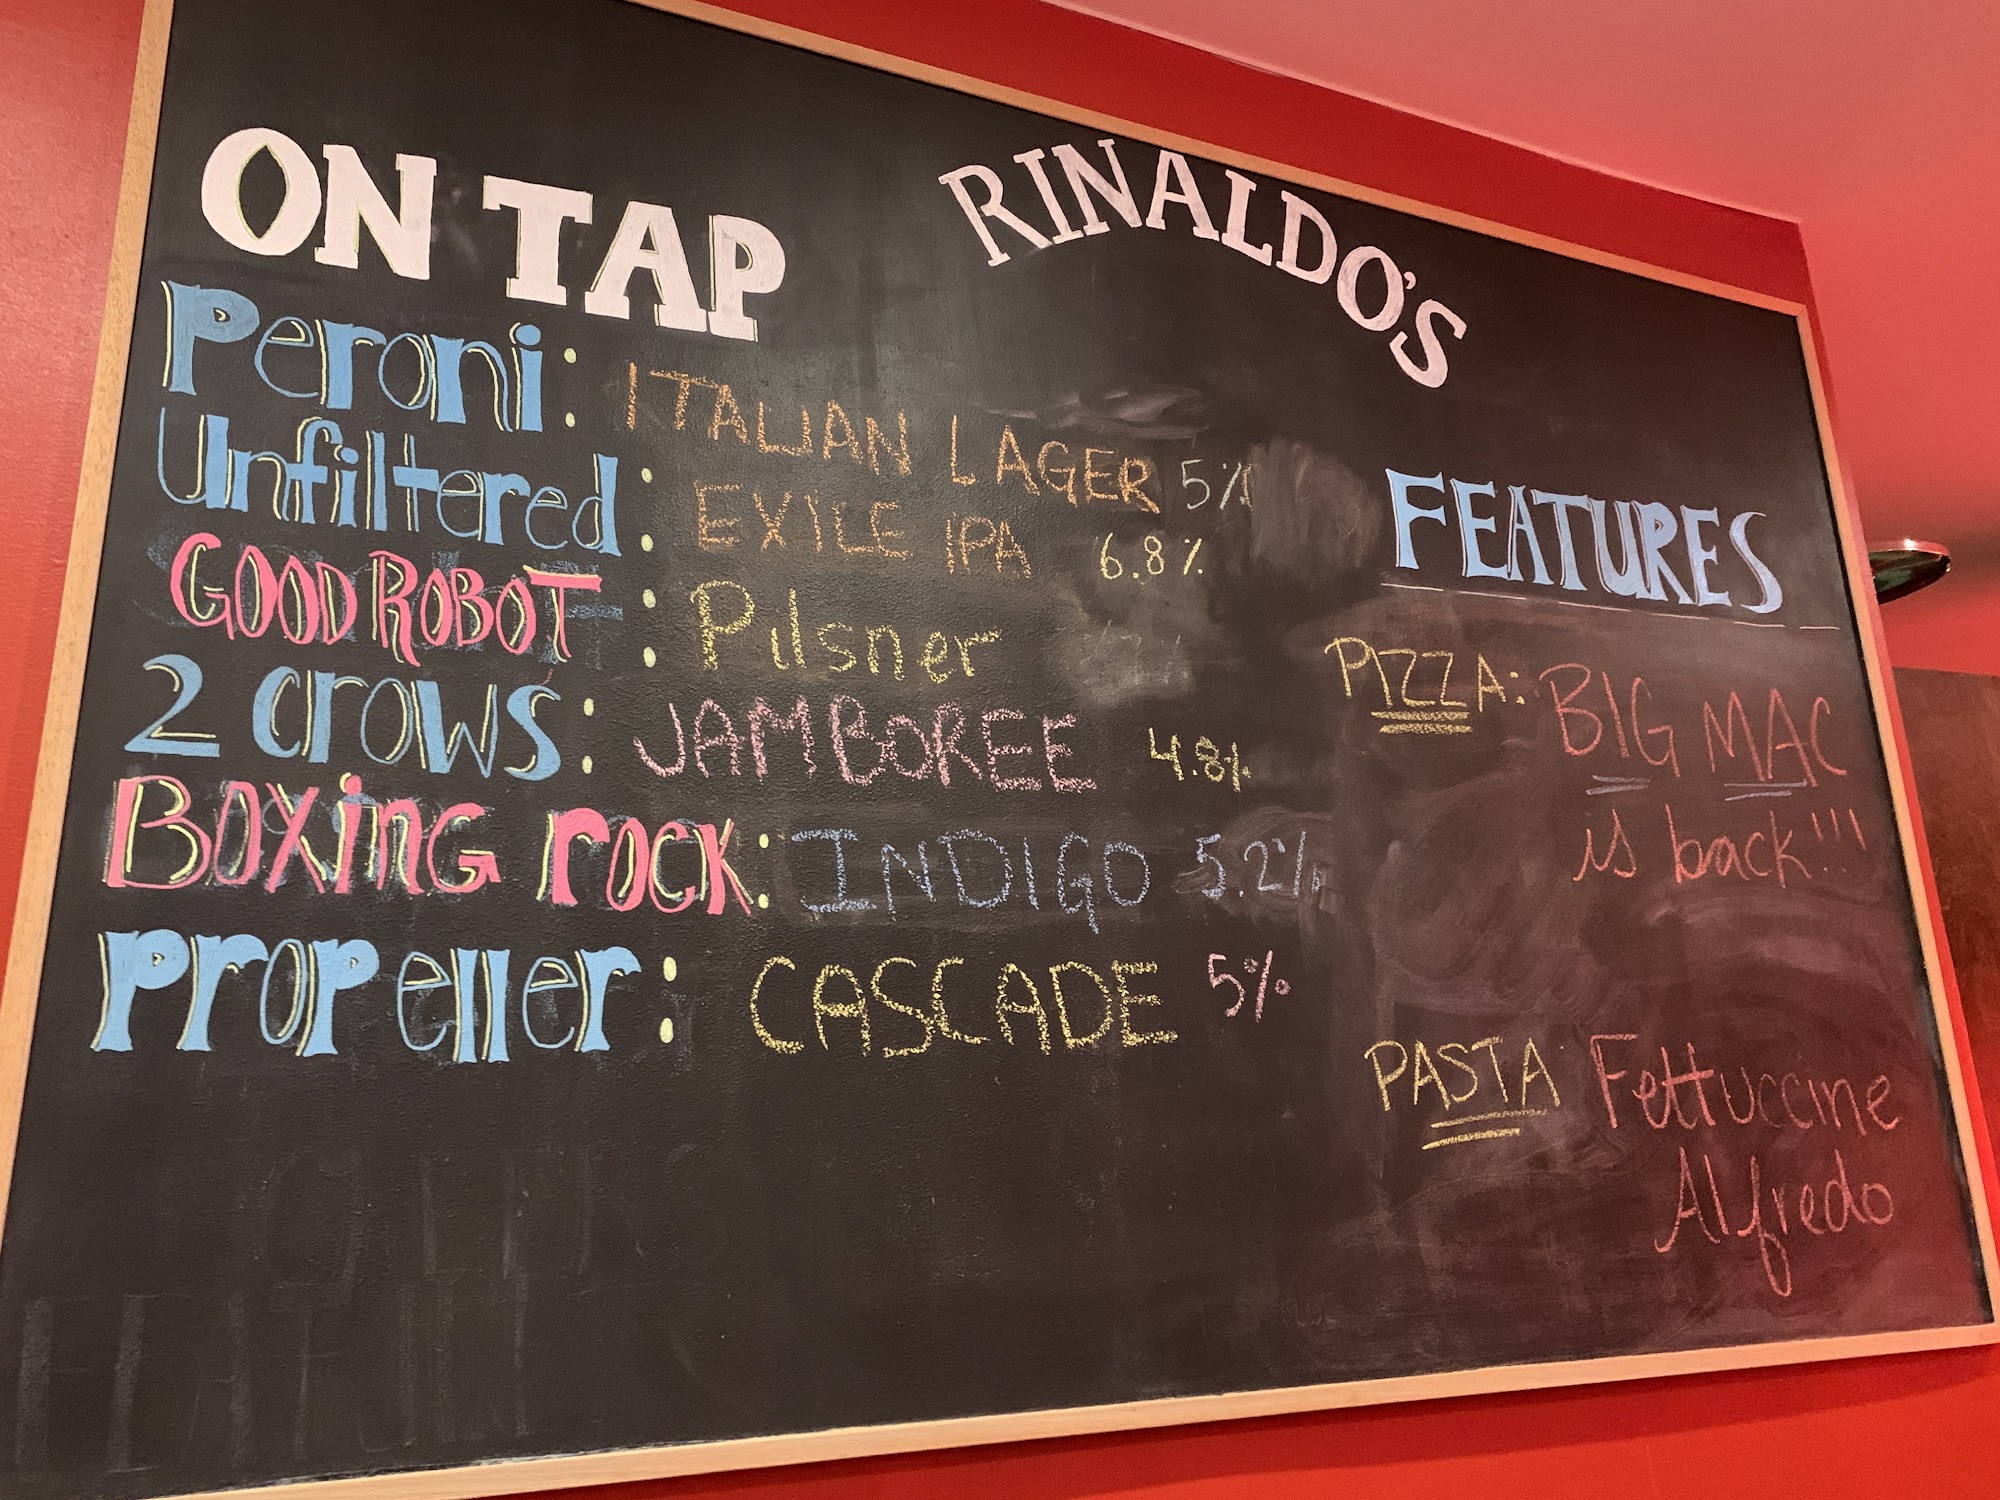 ON TAP
RINALDO'S
Peroni: ITALIAN LAGER 5%
Unfiltered: EXILE IPA 6.8%
GOOD ROBOT: Pilsner
2 crows: JAMBOREE 4.8%
Boxing rock: INDIGO 5.2%
Propeller: CASCADE 5%
FEATURES
PIZZA: BIG MAC
is back!!!
PASTA Fettuccine
Alfredo